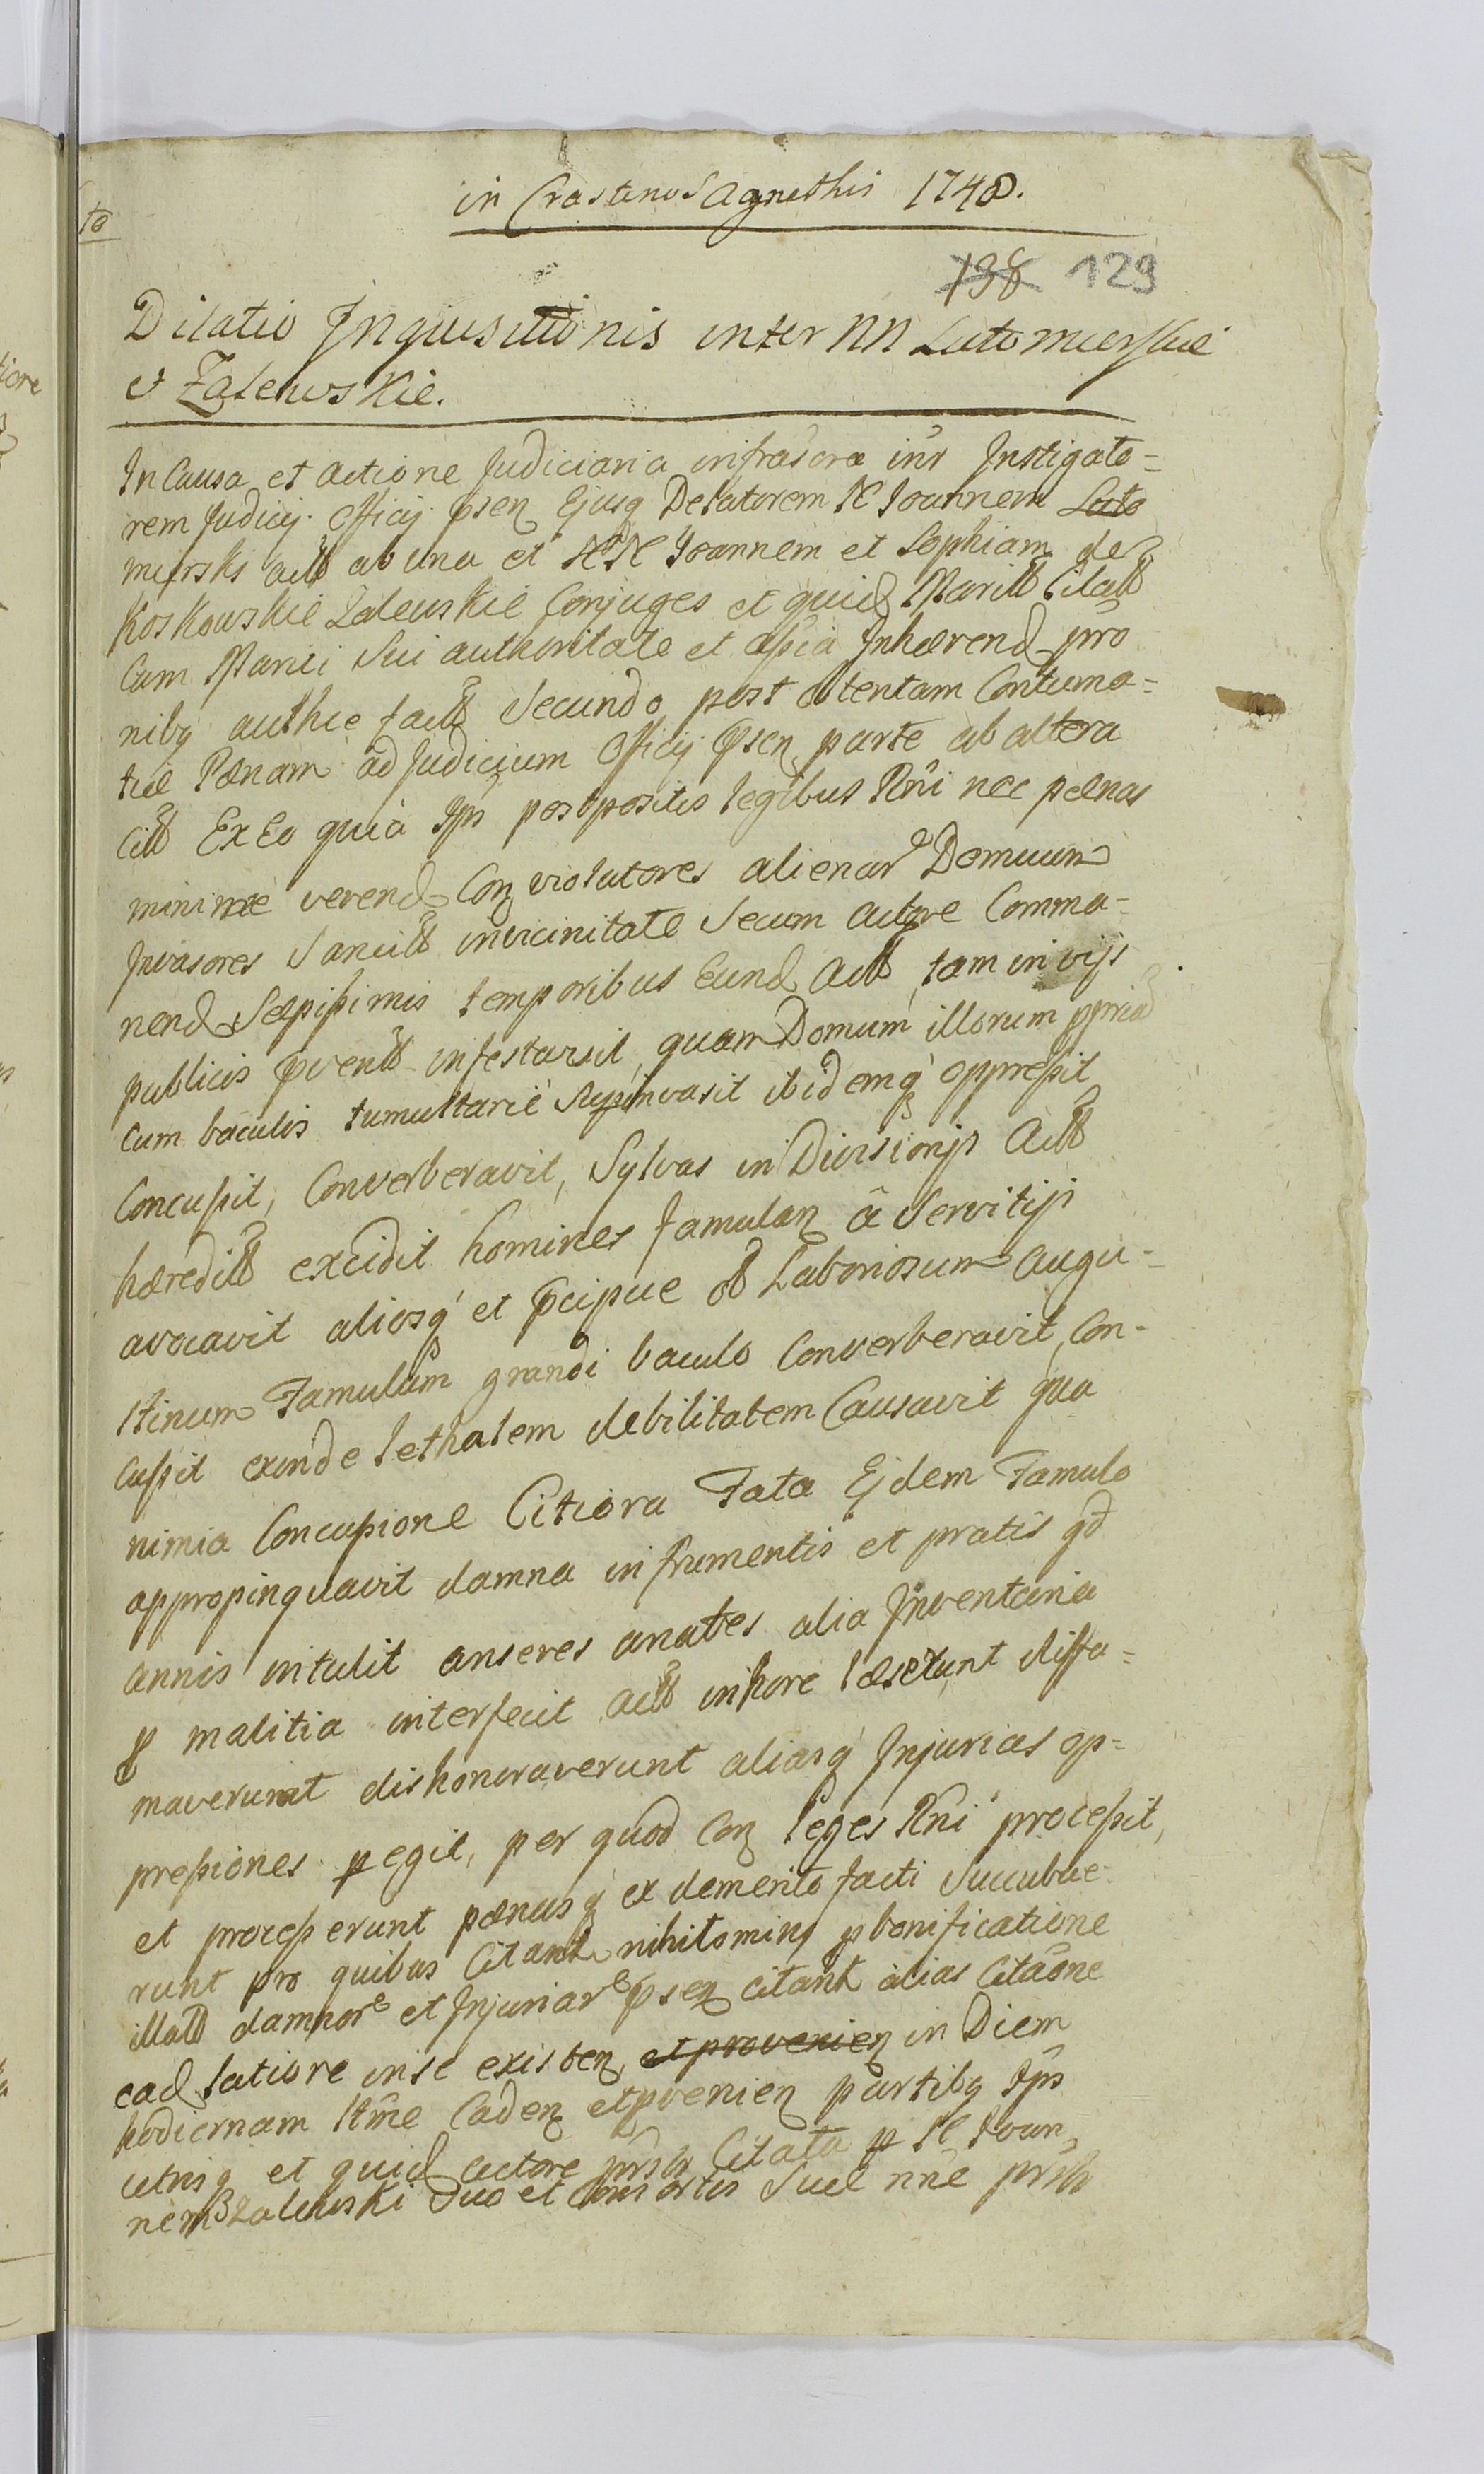 in Crastino S Agnethis 1748.
198 129
Dilatio Inquisitionis inter NN Lutomierskie
et Zalewskie.
In Causa et actione Judiciaria infrascra inr Instigato=
rem Judicij Officij psen Ejusq Delatorem N Joannem Luto
mierski act ab una et NN Joannem et Sophiam de
Koskowskie Zalewskie Conjuges et quid Marit Citat
Cum Mariti Sui authoritate et assia Inhærend pro
nibq authce fact Secundo post obtentam Contuma=
tiæ Pænam ad Judicium Officij psen parte ab altera
Citt Ex Eo quia Ipsi postpositis legibus Rni nec pænas
minime verend Con violatores alienar Domuum
Invasores Sancitt in vicinitate Secum actore Comma=
nend Sæpissimis temporibus Eund Act tam in vijs
publicis pvent infestarsit, quam Domum illorum ppriã
Cum baculis tumultarie invasit ibidemq oppressit
Concussit, Converberavit, Sylvas in Divisionis Act
hæredit excidit homines famulan â Servitijs
avocavit aliosq et præcipue ol Laboriosum Augu=
stinum Famulum grandi baculo Converberavit, Con-
cussit exinde lethalem debilitatem Causavit qua
nimia Concussione Citiora Fata Ejdem Famulo
appropinquavit damna in frumentis et pratis qd
annis intulit anseres anates alia Inventaria
p malitia interfecit act in hore læserunt diffa=
maverunt dishonoraverunt aliasq Injurias op=
pressiones pegit, per quod Con leges Rni processit,
et processerunt pænasq ex demerito facti Succubue
runt pro quibus Citant nihilominq p bonificatione
illatt damnor et Injuriar psen citant alias Citaõne
ead latiore in se existen et provenien in Diem
hodiernam Itme Caden et pvenien partibq Ipis
utrisq et quid actore Citata p N Joan
nem Zalewski Suo et Consortis Suæ nne